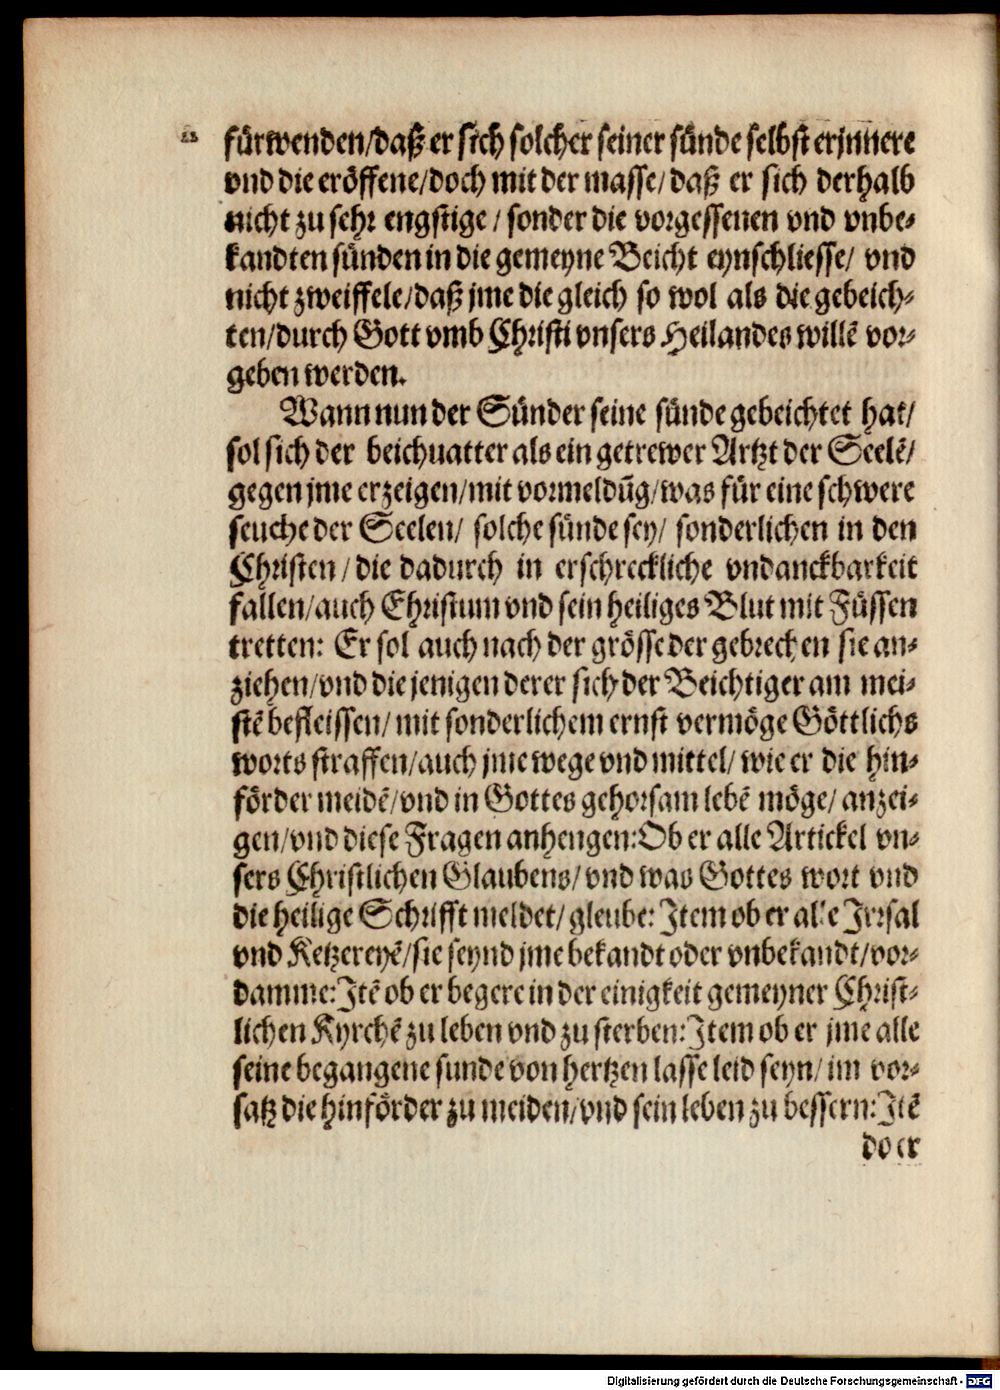 fürwenden/daß er sich solcher seiner sünde selbst erjnnere
vnd die eröffene/doch mit der masse/daß er sich derhalb
nicht zu sehr engstige/sonder die vorgessenen vnd vnbe-
kandten sünden in die gemeyne Beicht eynschliesse/ vnd
nicht zweiffele/daß jme die gleich so wol als die gebeich-
ten/durch Gott vmb Christi vnsers Heilandes willē vor-
geben werden.
Wann nun der Sünder seine sünde gebeichtet hat/
sol sich der beichuatter als ein getrewer Artzt der Seelē/
gegen jme erzeigen/mit vormeldūg/was für eine schwere
seuche der Seelen/ solche sünde sey/ sonderlichen in den
Christen/die dadurch in erschreckliche vndanckbarkeit
fallen/auch Christum vnd sein heiliges Blut mit Füssen
tretten: Er sol auch nach der grösse der gebrechen sie an-
ziehen/vnd die jenigen derer sich der Beichtiger am mei-
stē befleissen/mit sonderlichem ernst vermöge Göttlichs
worts straffen/auch jme wege vnd mittel/ wie er die hin-
förder meidē/vnd in Gottes gehorsam lebē möge/anzei-
gen/vnd diese Fragen anhengen:Ob er alle Artickel vn-
sers Christlichen Glaubens/vnd was Gottes wort vnd
die heilige Schrifft meldet/gleube: Item ob er alle Irrsal
vnd Ketzereyē/sie seynd jme bekandt oder vnbekandt/vor-
damme:Itē ob er begere in der einigkeit gemeyner Christ-
lichen Kyrchē zu leben vnd zu sterben:Item ob er jme alle
seine begangene sunde von hertzen lasse leid seyn/im vor-
satz die hinförder zu meiden/vnd sein leben zu bessern:Itē
do er
Digitalisierung gefördert durch die Deutsche Forschungsgemeinschaft - DFG